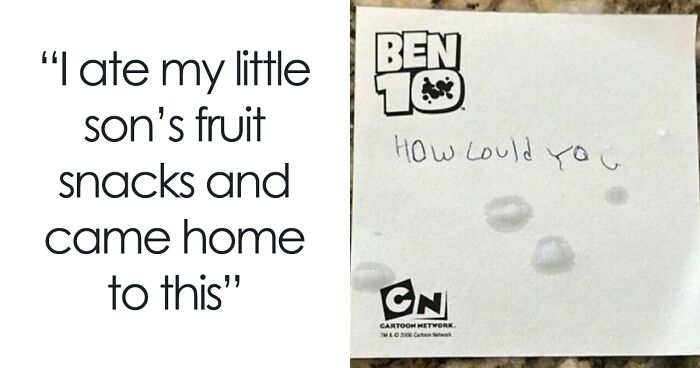 “I ate my little
son’s fruit
snacks and
came home
to this”
BEN
10
HOW COULd YOU
CN
CARTOON NETWORK.
TM & © 2006 Cartoon Network